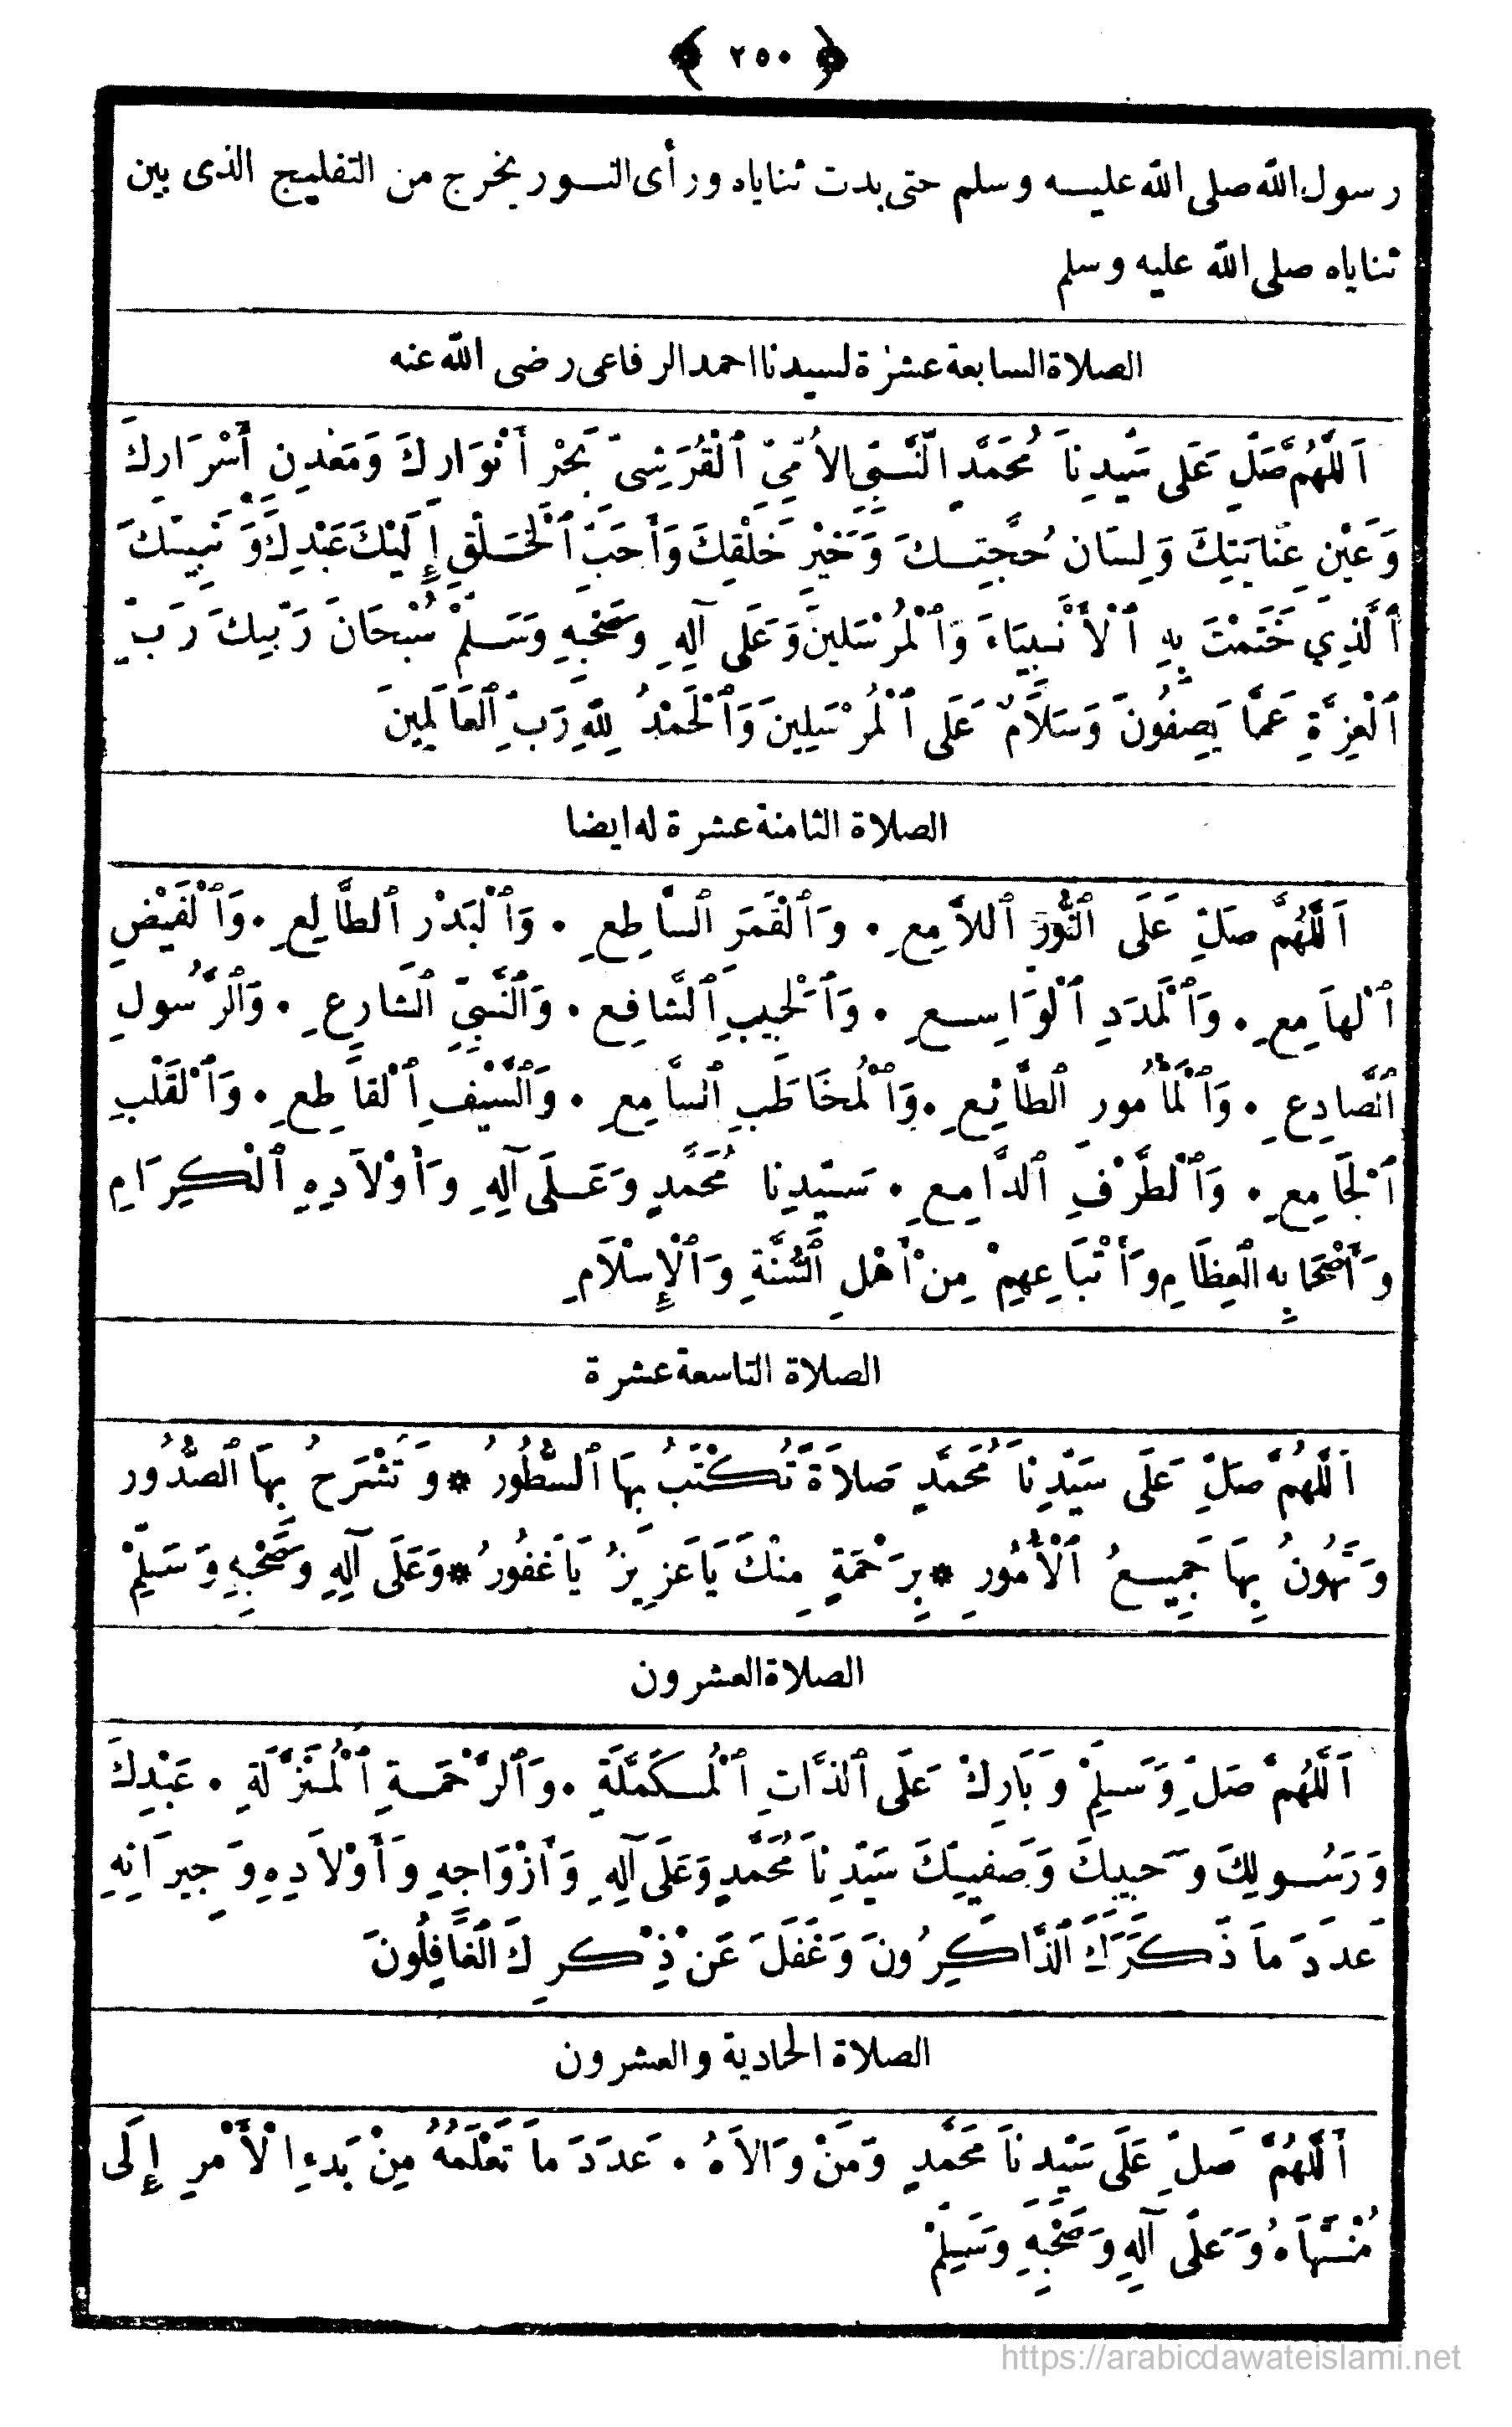 ﴿ ٢٥٠ ﴾
رسول الله صلى الله عليه وسلم حتى بدت ثناياه ورأى النور يخرج من التفليج الذى بين
ثناياه صلى الله عليه وسلم
الصلاة السابعة عشرة لسيدنا احمد الرفاعى رضى الله عنه
اَللّٰهُمَّ صَلِّ عَلَى سَيِّدِنَا مُحَمَّدٍ النَّبِيِّ الأُمِّيِّ ٱلْقُرَشِىِّ بَحْرِ أَنْوَارِكَ وَمَعْدِنِ أَسْرَارِكَ
وَعَيْنِ عِنَايَتِكَ وَلِسَانِ حُجَّتِكَ وَخَيْرِ خَلْقِكَ وَأَحَبِّ ٱلْخَلْقِ إِلَيْكَ عَبْدِكَ وَنَبِيِّكَ
ٱلَّذِي خَتَمْتَ بِهِ ٱلْأَنْبِيَاءَ وَٱلْمُرْسَلِينَ وَعَلَى آلِهِ وَصَحْبِهِ وَسَلِّمْ سُبْحَانَ رَبِّكَ رَبِّ
ٱلْعِزَّةِ عَمَّا يَصِفُونَ وَسَلاَمٌ عَلَى ٱلْمُرْسَلِينَ وَٱلْحَمْدُ لِلّٰهِ رَبِّ ٱلْعَالَمِينَ
الصلاة الثامنة عشرة له ايضا
اَللّٰهُمَّ صَلِّ عَلَى ٱلنُّورِ ٱللاَّمِعِ • وَٱلْقَمَرِ ٱلسَّاطِعِ • وَٱلْبَدْرِ ٱلطَّالِعِ • وَٱلْفَيْضِ
ٱلْهَامِعِ • وَٱلْمَدَدِ ٱلْوَاسِعِ • وَٱلْحَبِيبِ ٱلشَّافِعِ • وَٱلنَّبِيِّ ٱلشَّارِعِ • وَٱلرَّسُولِ
ٱلصَّادِعِ • وَٱلْمَأْمُورِ ٱلطَّائِعِ • وَٱلْمُخَاطَبِ ٱلسَّامِعِ • وَٱلسَّيْفِ ٱلْقَاطِعِ • وَٱلْقَلْبِ
ٱلْجَامِعِ • وَٱلطَّرْفِ ٱلدَّامِعِ • سَيِّدِنَا مُحَمَّدٍ وَعَلَى آلِهِ وَأَوْلاَدِهِ ٱلْكِرَامِ
وَأَصْحَابِهِ ٱلْعِظَامِ وَأَتْبَاعِهِمْ مِنْ أَهْلِ ٱلسُّنَّةِ وَٱلْإِسْلاَمِ
الصلاة التاسعة عشرة
اَللّٰهُمَّ صَلِّ عَلَى سَيِّدِنَا مُحَمَّدٍ صَلاَةً تُكْتَبُ بِهَا ٱلسُّطُورُ * وَتُشْرَحُ بِهَا ٱلصُّدُورُ
وَتَهُونُ بِهَا جَمِيعُ ٱلْأُمُورِ * بِرَحْمَةٍ مِنْكَ يَا عَزِيزُ يَا غَفُورُ * وَعَلَى آلِهِ وَصَحْبِهِ وَسَلِّمْ
الصلاة العشرون
اَللّٰهُمَّ صَلِّ وَسَلِّمْ وَبَارِكْ عَلَى ٱلذَّاتِ ٱلْمُكَمَّلَةِ • وَٱلرَّحْمَةِ ٱلْمُنَزَّلَةِ • عَبْدِكَ
وَرَسُولِكَ وَحَبِيبِكَ وَصَفِيِّكَ سَيِّدِنَا مُحَمَّدٍ وَعَلَى آلِهِ وَأَزْوَاجِهِ وَأَوْلاَدِهِ وَجِيرَانِهِ
عَدَدَ مَا ذَكَرَكَ ٱلذَّاكِرُونَ وَغَفَلَ عَنْ ذِكْرِكَ ٱلْغَافِلُونَ
الصلاة الحادية والعشرون
أَللّٰهُمَّ صَلِّ عَلَى سَيِّدِنَا مُحَمَّدٍ وَمَنْ وَالاَهُ • عَدَدَ مَا تَعْلَمُهُ مِنْ بَدءِ الْأَمْرِ إِلَى
مُنْتَهَاهُ وَعَلَى آلِهِ وَصَحْبِهِ وَسَلِّمْ
https://arabicdawateislami.net